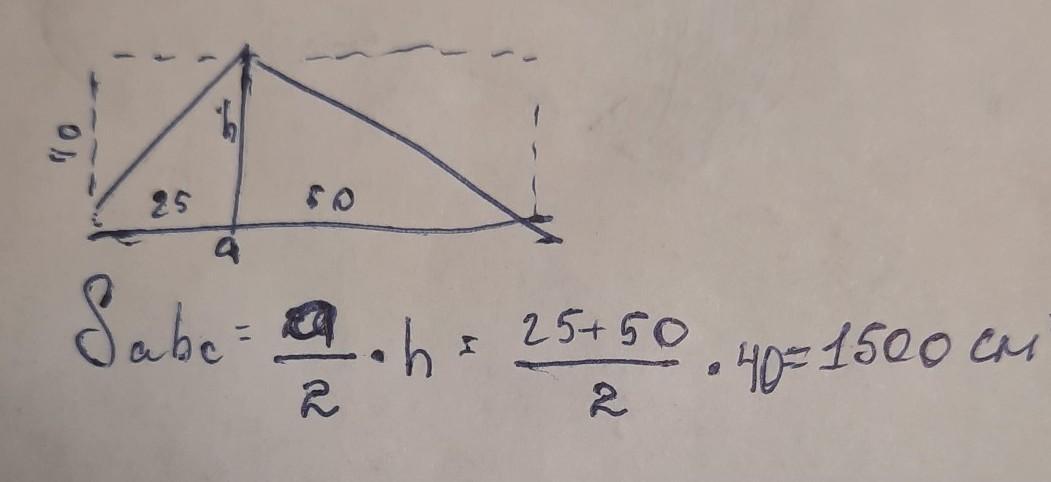 h
40
25 50
a
Sabc = a/2 · h = 25+50/2 · 40 = 1500 см